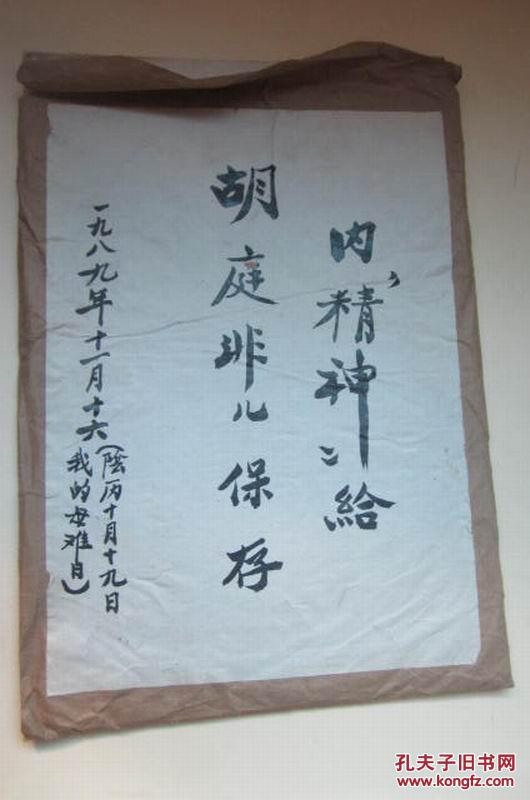 内、“精神”给
胡庭非儿保存
一九八九年十一月十六
(陰历十月十九日
我的母难日)
孔夫子旧书网
www.kongfz.com